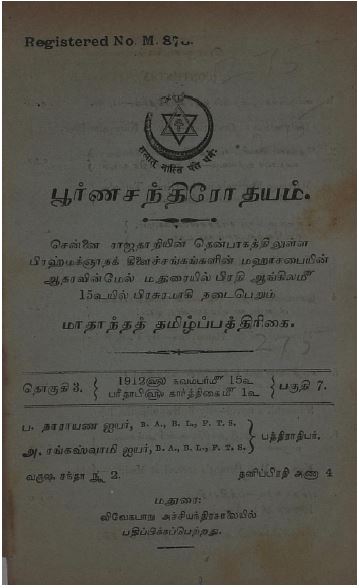 Registered No. M. 878.
सत्यात् नास्ति परो धर्मः
பூர்ணசந்திரோதயம்.
சென்னை ராஜதானியின் தென்பாகத்திலுள்ள
பிரஹ்மக்ஞானக் கிளைச்சங்கங்களின் மஹாசபையின்
ஆதரவின்மேல் மதுரையில் பிரதி ஆங்கிலமீ
15௳யில் பிரசுரமாகி நடைபெறும்
மாதாந்தத் தமிழ்ப்பத்திரிகை.
தொகுதி 3. { 1912௵ நவம்பர்மீ 15௳ } பகுதி 7.
பரிதாபி௵ கார்த்திகைமீ 1௳
ப. நாராயண ஐயர், B. A., B. L., F. T. S.
அ. ரங்கஸ்வாமி ஐயர், B. A., B. L., F. T. S. } பத்திராதிபர்.
வருஷ சந்தா ரூ 2. தனிப்பிரதி அணா 4
மதுரை:
விவேகபாநு அச்சியந்திரசாலையில்
பதிப்பிக்கப்பெற்றது.